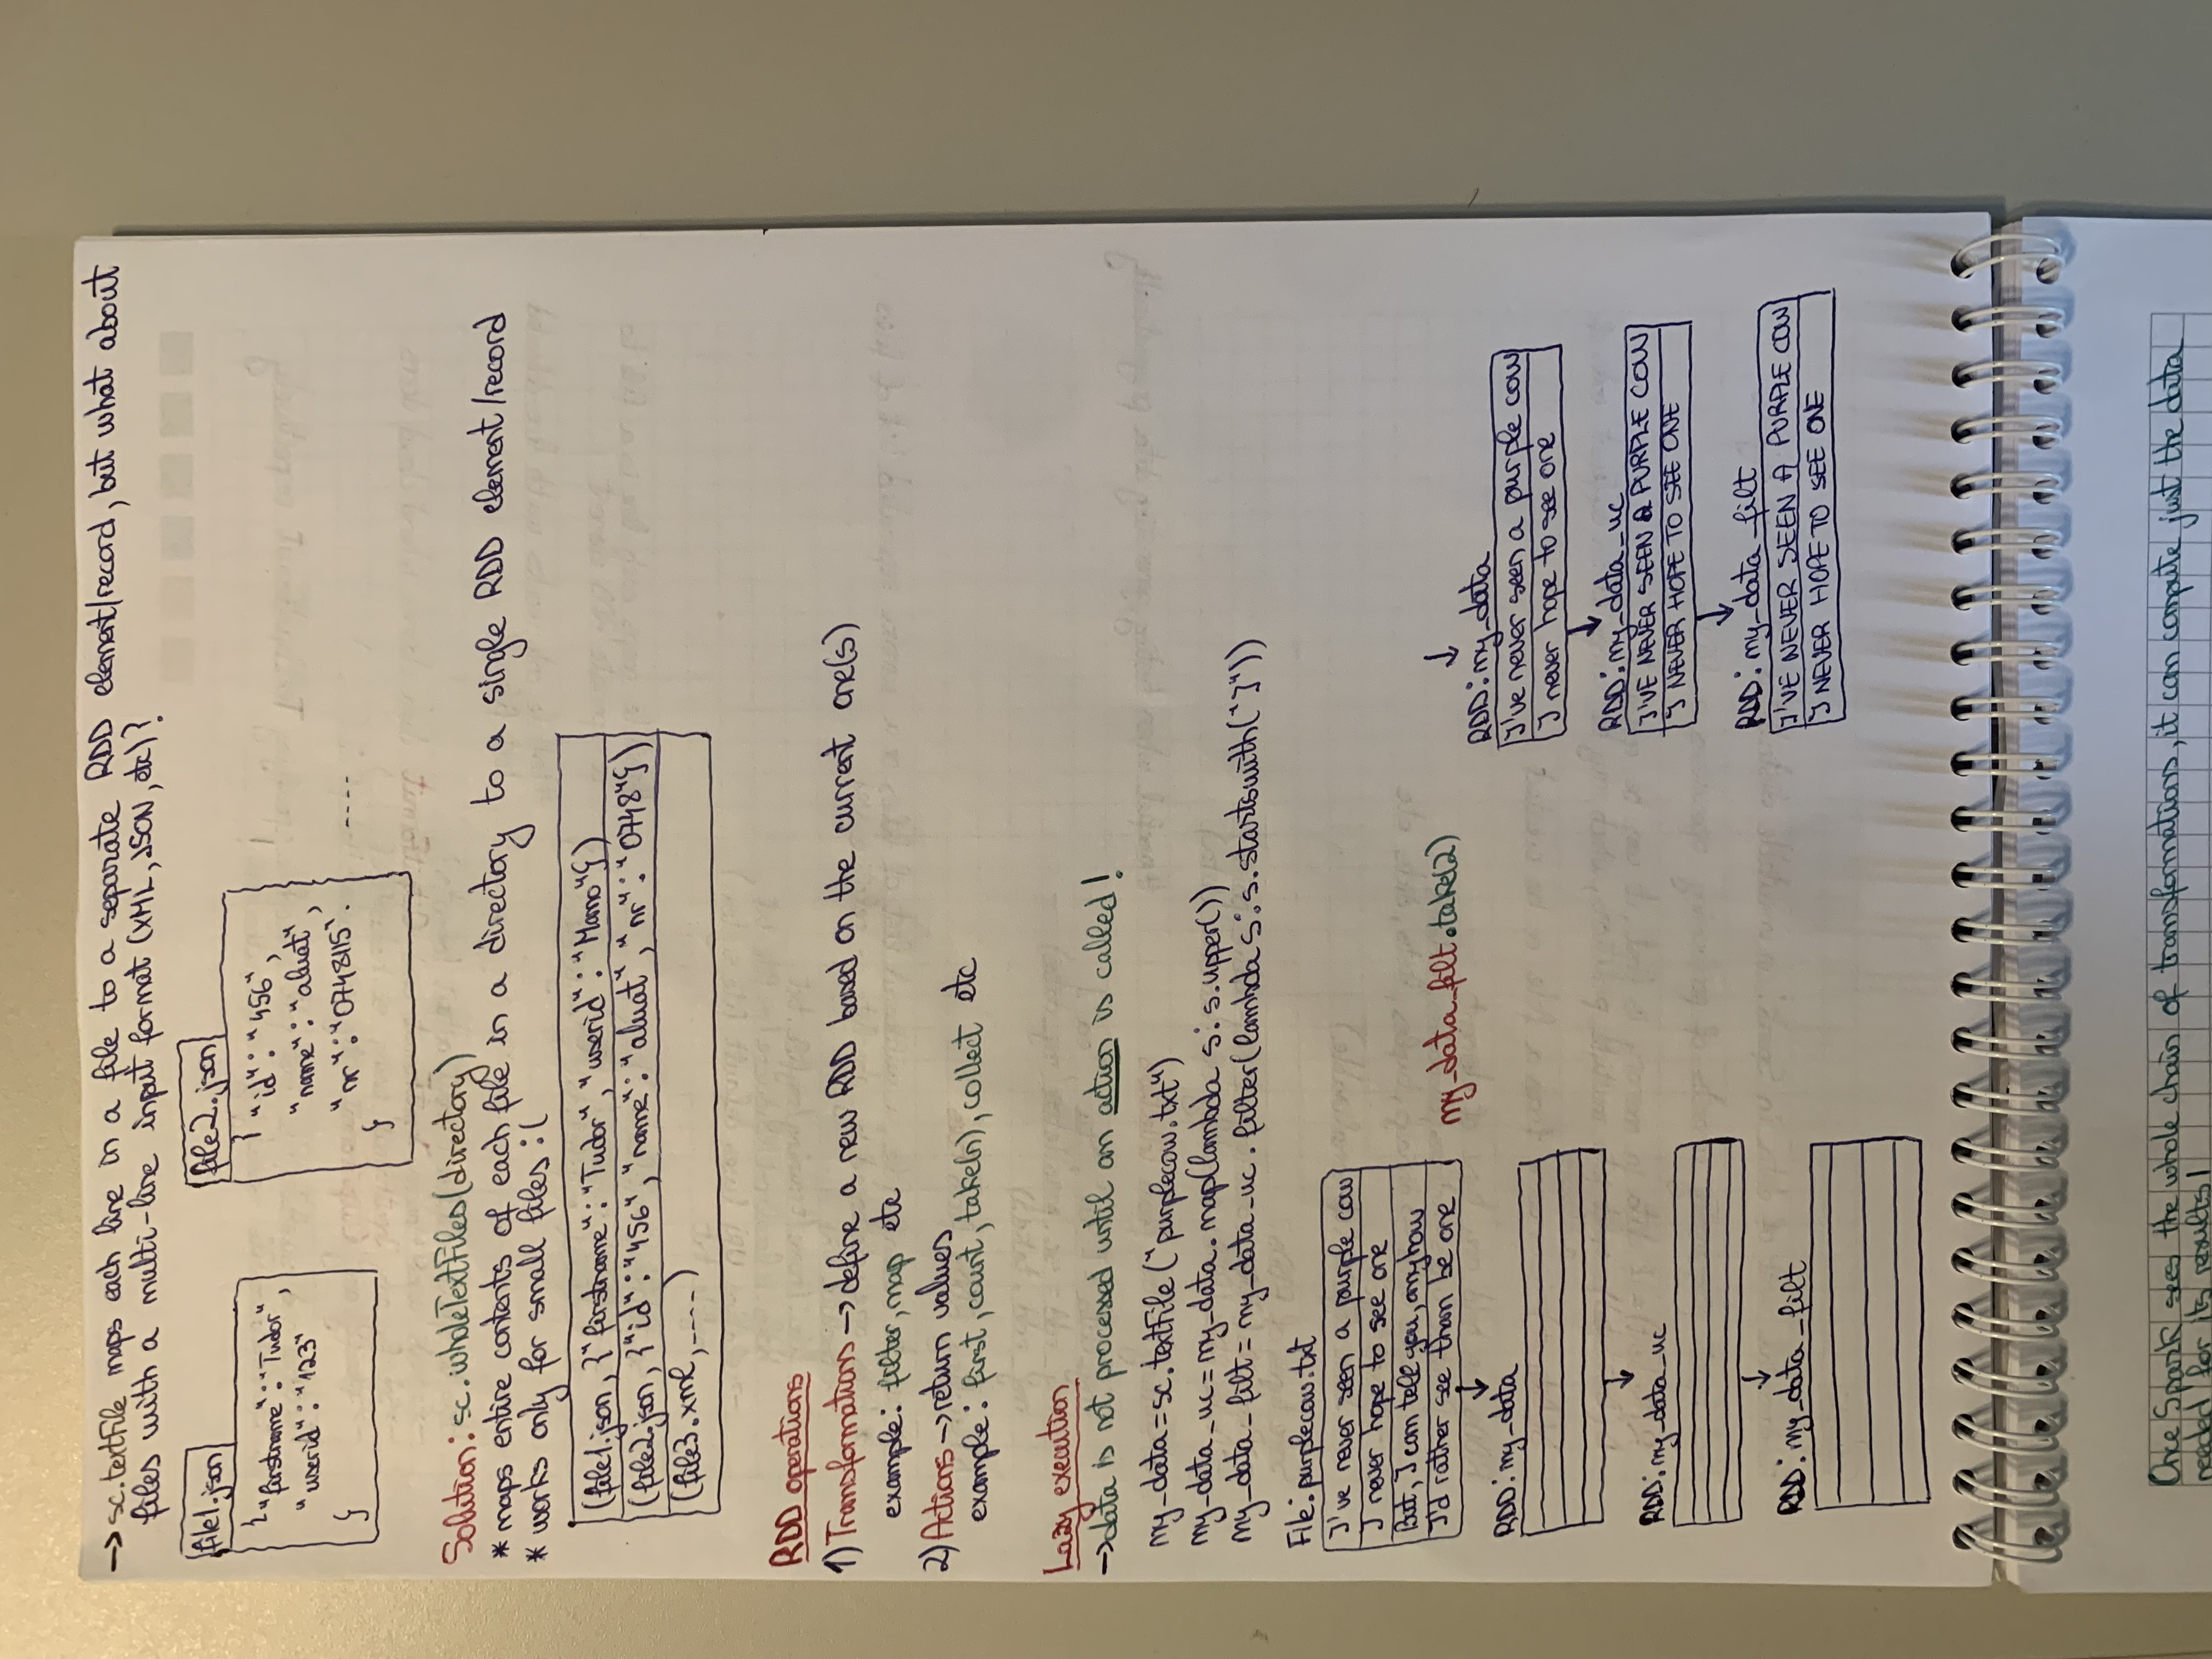 → sc.textFile maps each line in a file to a separate RDD element/record, but what about
files with a multi-line input format (XML, JSON, etc)?
file1.json
{"firstname":"Tudor",
"userid":"123"
}
file2.json
{"id":"456",
"name":"aluat",
"nr":"0748115".
}
----
Solution: sc.wholeTextFiles(directory)
* maps entire contents of each file in a directory to a single RDD element/record
* works only for small files :(
(file1.json, {"firstname":"Tudor","userid":"Mamo"})
(file2.json, {"id":"456","name":"aluat","nr":"0748"})
(file3.xml, ----)
RDD operations
1) Transformations → define a new RDD based on the current one(s)
example: filter, map etc
2) Actions → return values
example: first, count, take(n), collect etc
Lazy execution
→ data is not processed until an action is called!
my_data=sc.textFile("purplecow.txt")
my_data_uc=my_data.map(lambda s: s.upper())
my_data_filt=my_data_uc.filter(lambda s: s.startswith("I"))
File: purplecow.txt
I've never seen a purple cow
I never hope to see one
But, I can tell you, anyhow
I'd rather see than be one
RDD: my_data
RDD: my_data_uc
RDD: my_data_filt
my_data_filt.take(2)
RDD: my_data
I've never seen a purple cow
I never hope to see one
RDD: my_data_uc
I'VE NEVER SEEN A PURPLE COW
I NEVER HOPE TO SEE ONE
RDD: my_data_filt
I'VE NEVER SEEN A PURPLE COW
I NEVER HOPE TO SEE ONE
Once Spark sees the whole chain of transformations, it can compute just the data
needed for its results!